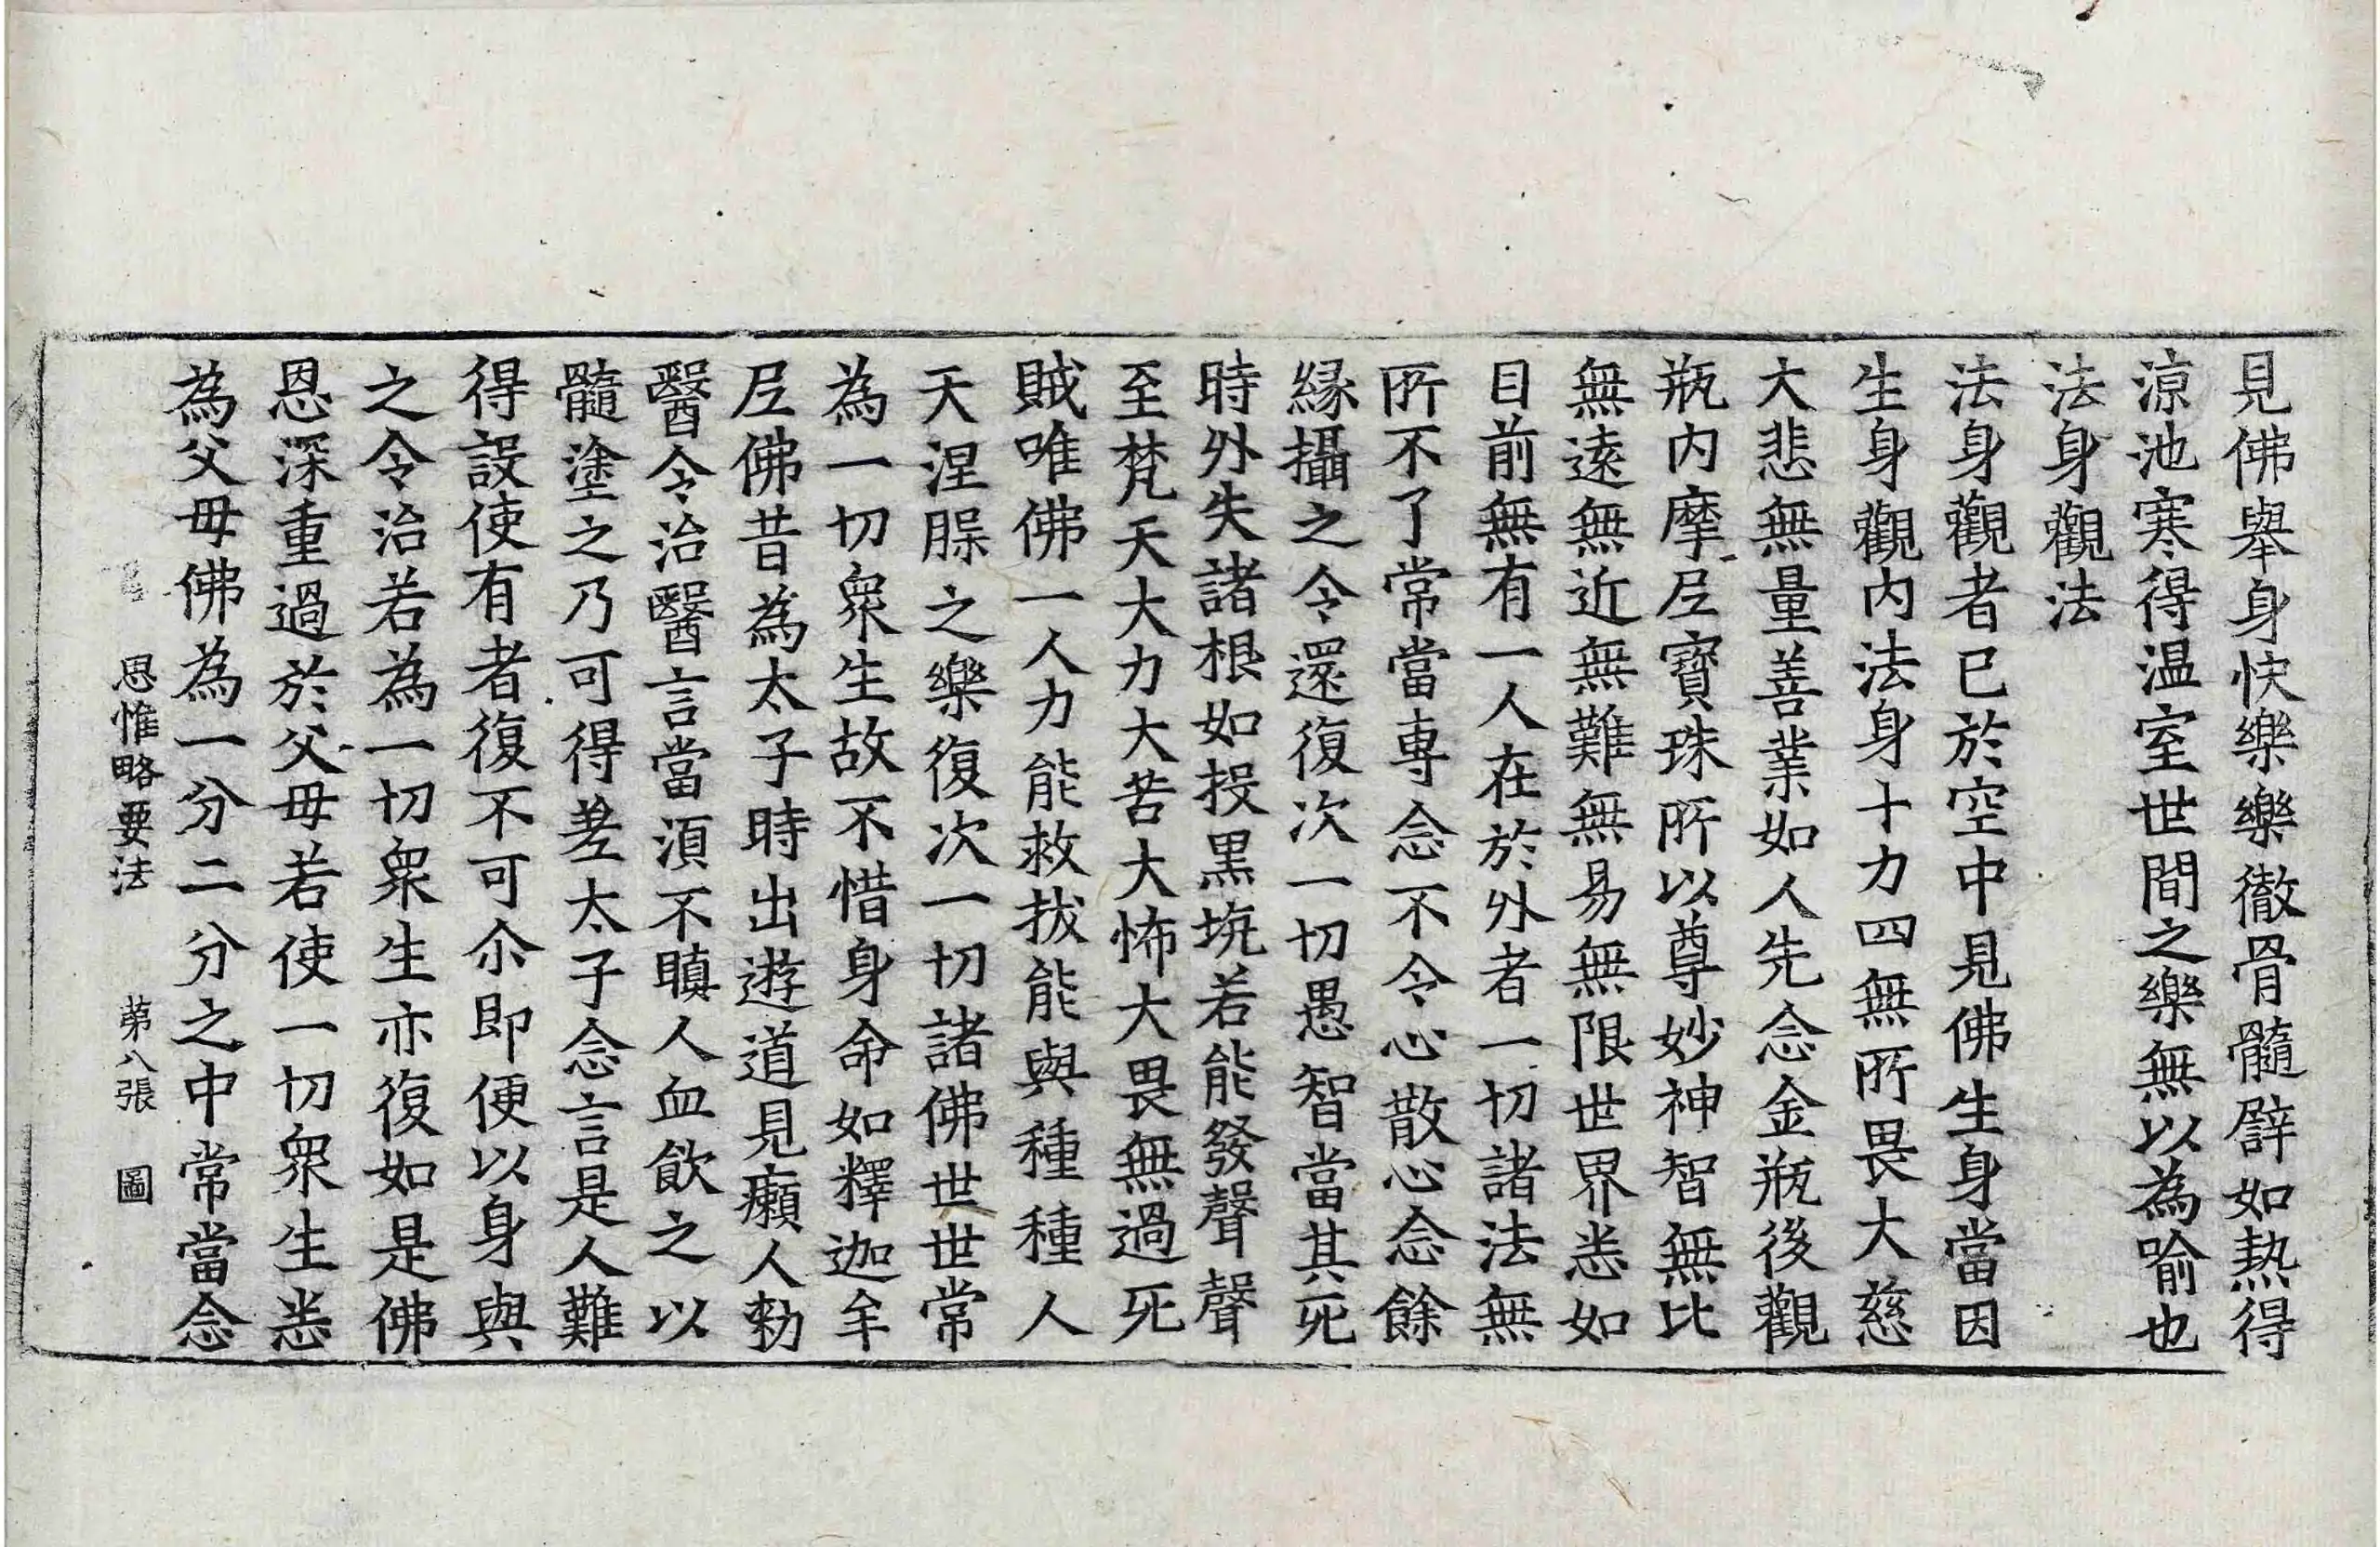 見佛舉身快樂樂徹骨髓譬如熱得
涼池寒得温室世間之樂無以為喻也
法身觀法
法身觀者已於空中見佛生身當因
生身觀内法身十力四無所畏大慈
大悲無量善業如人先念金瓶後觀
瓶内摩尼寶珠所以尊妙神智無比
無遠無近無難無易無限世界悉如
目前無有一人在於外者一切諸法無
所不了常當專念不令心散心念餘
緣攝之令還復次一切愚智當其死
時外失諸根如投黑坑若能發聲聲
至梵天大力大苦大怖大畏無過死
賊唯佛一人力能救拔能與種種人
天涅槃之樂復次一切諸佛世世常
為一切眾生故不惜身命如釋迦牟
尼佛昔為太子時出遊道見癩人勅
醫令治醫言當須不瞋人血飲之以
髓塗之乃可得差太子念言是人難
得設使有者復不可尒即便以身與
之令治若為一切眾生亦復如是佛
恩深重過於父母若使一切眾生悉
為父母佛為一分二分之中常當念
思惟略要法 第八張 圖